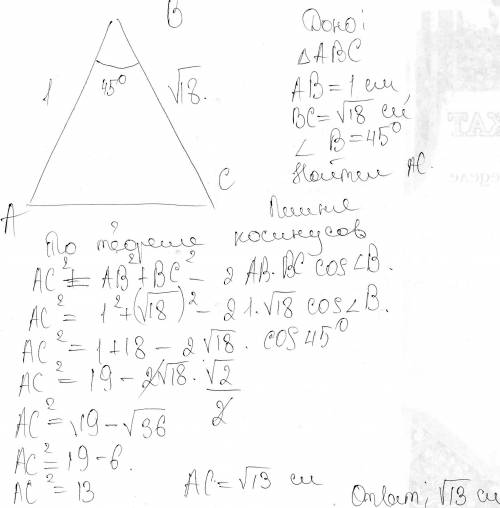 B
45°
1
√18.
A
C
Дано:
△ABC
AB = 1 см
BC = √18 см
∠ B = 45°
Найти AC.
По теореме косинусов
AC² = AB² + BC² - 2 AB·BC cos∠B.
AC² = 1² + (√18)² - 2 1·√18 cos∠B.
AC² = 1 + 18 - 2√18 · cos 45°
AC² = 19 - 2√18 · √2/2
AC² = 19 - √36
AC² = 19 - 6.
AC² = 13
AC = √13 см
Ответ: √13 см